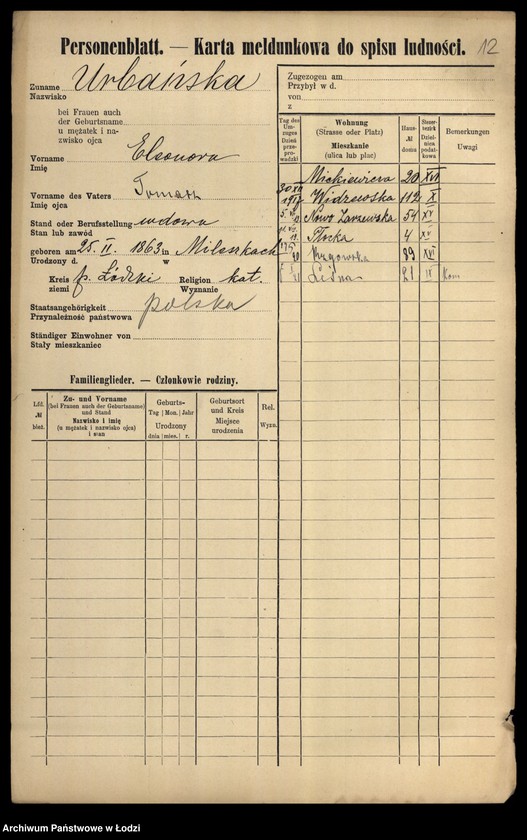 Personenblatt. — Karta meldunkowa do spisu ludności. 12
Zuname Urbańska
Nazwisko
bei Frauen auch
der Geburtsname
u mężatek i na-
zwisko ojca
Vorname Eleonora
Imię
Vorname des Vaters Tomasz
Imię ojca
Stand oder Berufsstellung wdowa
Stan lub zawód
geboren am 25. II. 1863 in Mileszkach
Urodzony d. w
Kreis p. Łódzki Religion kat.
ziemi Wyznanie
Staatsangehörigkeit polska
Przynależność państwowa
Ständiger Einwohner von
Stały mieszkaniec
Zugezogen am
Przybył w d.
von
z
Tag des Umzuges Dzień przeprowadzki
Wohnung (Strasse oder Platz) Mieszkanie (ulica lub plac)
Haus-№ domu
Steuerbezirk Dzielnica podatkowa
Bemerkungen Uwagi
Mickiewicza 20 XVI
30 VII 1917 Widzewska 112 X
Nowo Zarzewska 54 XV
Płocka 4 XV
Rzgowska 89 XVI
Leśna 21 II Kom
Familienglieder. — Członkowie rodziny.
Lfd. № bież.
Zu- und Vorname (bei Frauen auch der Geburtsname) und Stand Nazwisko i imię (u mężatek i nazwisko ojca) i stan
Geburts- Tag Mon. Jahr Urodzony dnia mies. r.
Geburtsort und Kreis Miejsce urodzenia
Rel. Wyzn.
Archiwum Państwowe w Łodzi